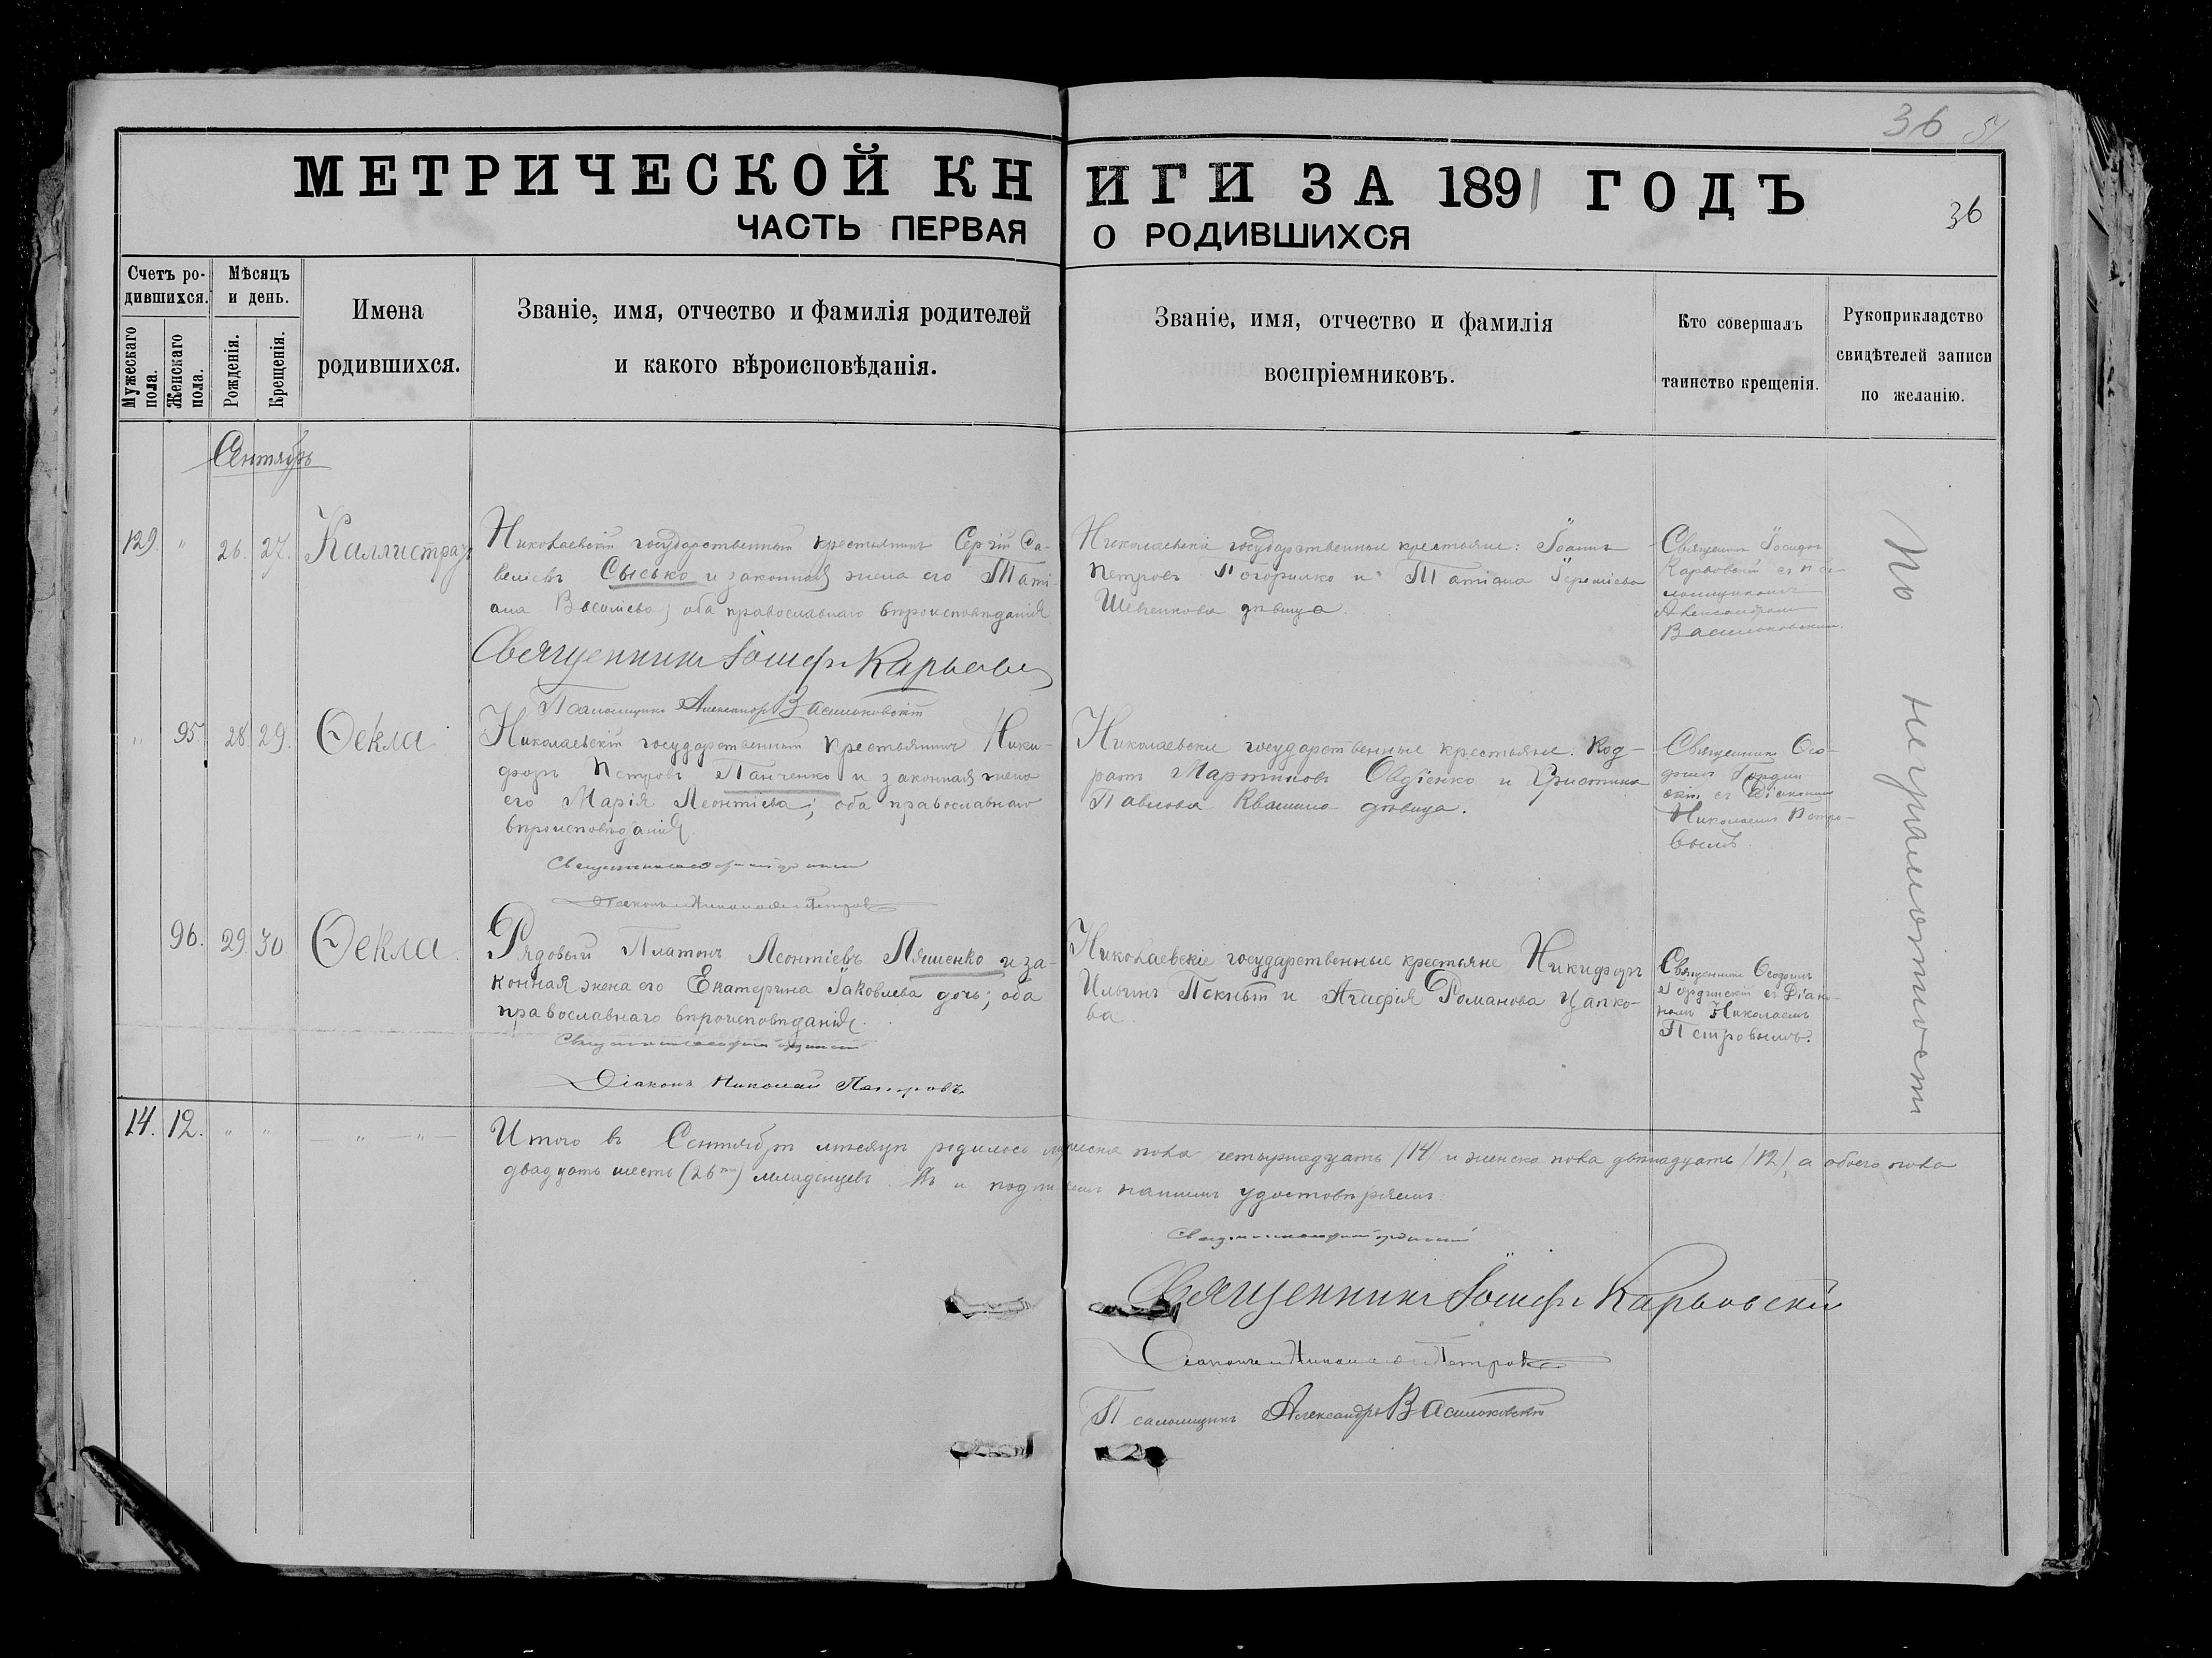 36 51
МЕТРИЧЕСКОЙ КН ИГИ ЗА 1891 ГОДЪ
36
ЧАСТЬ ПЕРВАЯ О РОДИВШИХСЯ
Счетъ ро-
дившихся.
Мужескаго пола.
Женскаго пола.
Мѣсяцъ
и день.
Рожденія.
Крещенія.
Имена
родившихся.
Званіе, имя, отчество и фамилія родителей
и какого вѣроисповѣданія.
Званіе, имя, отчество и фамилія
воспріемниковъ.
Кто совершалъ
таинство крещенія.
Рукоприкладство
свидѣтелей записи
по желанію.
Сентябрь
129. " 26. 27. Каллистратъ
Николаевскій государственный крестьянинъ Сергій Са-
веліевъ Сысько и законная жена его Таті-
ана оба православнаго вѣроисповѣданія
Священникъ Іосифъ
Псаломщикъ Александръ Васильковскій
Николаевскіе государственные крестьяне: Іоаннъ
Петровъ Погорилко и Татіана
Шевченкова дѣвица.
Священникъ Іосифъ
Карьовскій съ пса-
ломщикомъ
Александромъ
Васильковскимъ.
" 95 28 29. Ѳекла
Николаевскій государственный крестьянинъ Ники-
форъ Петровъ Панченко и законная жена
его Марія Леонтіева; оба православнаго
вѣроисповѣданія.
Діаконъ Николай Петровъ
Николаевскіе государственные крестьяне. Код-
ратъ Мартиновъ Овдіенко и Христина
Павлова Квашина дѣвица.
Священникъ Ѳео-
скій съ Діакономъ
Николаемъ Петро-
вымъ.
96. 29 30 Ѳекла
Рядовый Платонъ Леонтіевъ Ляшенко и за-
конная жена его Екатерина Іаковлева дочь; оба
православнаго вѣроисповѣданія.
Діаконъ Николай Петровъ
Николаевскіе государственные крестьяне Никифоръ
Ильинъ и Агафія Романова Цапко-
ва
Священникъ Ѳеодосій
Гординскій съ Діако-
номъ Николаемъ
Петровымъ.
По неграмотности
14. 12. " " — " — " —
Итого въ Сентябрѣ мѣсяцѣ родилось мужеска пола четырнадцать /14/ и женска пола двѣнадцать /12/, а обоего пола
двадцать шесть (26) младенцевъ. и подписомъ нашимъ удостовѣряемъ:
Священникъ Іосифъ Карьовскій
Діаконъ Николай Петровъ
Псаломщикъ Александръ Васильковскій